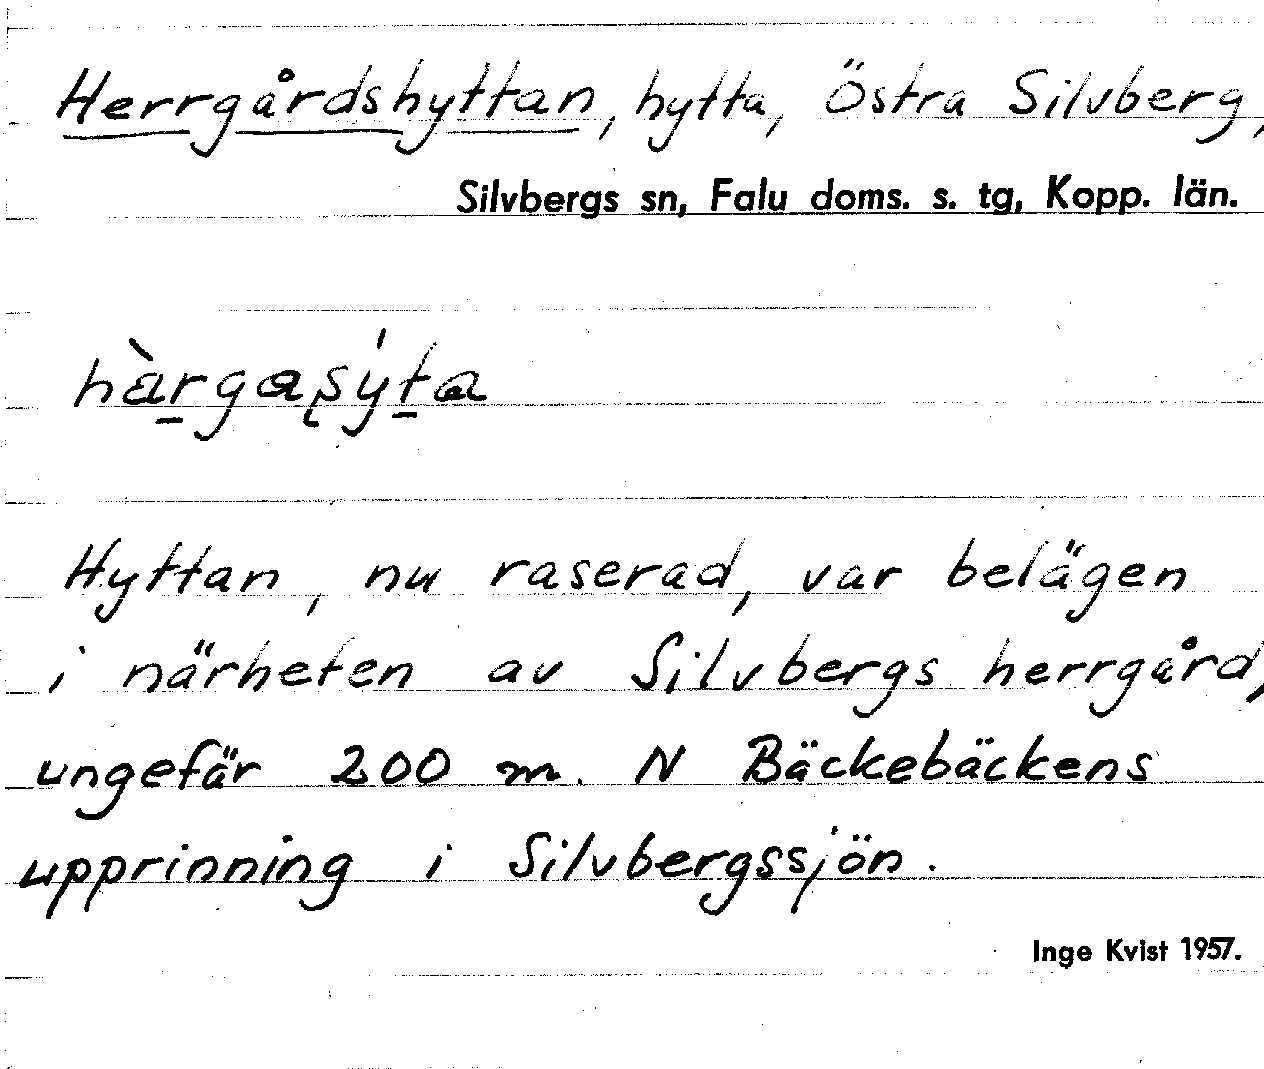 Herrgårdshyttan, hytta, Östra Silvberg,
Silvbergs sn, Falu doms. s. tg, Kopp. län.
hàrgaʂýta
Hyttan, nu raserad, var belägen
i närheten av Silvbergs herrgård,
ungefär 200 m. N Bäckebäckens
upprinning i Silvbergssjön.
Inge Kvist 1957.